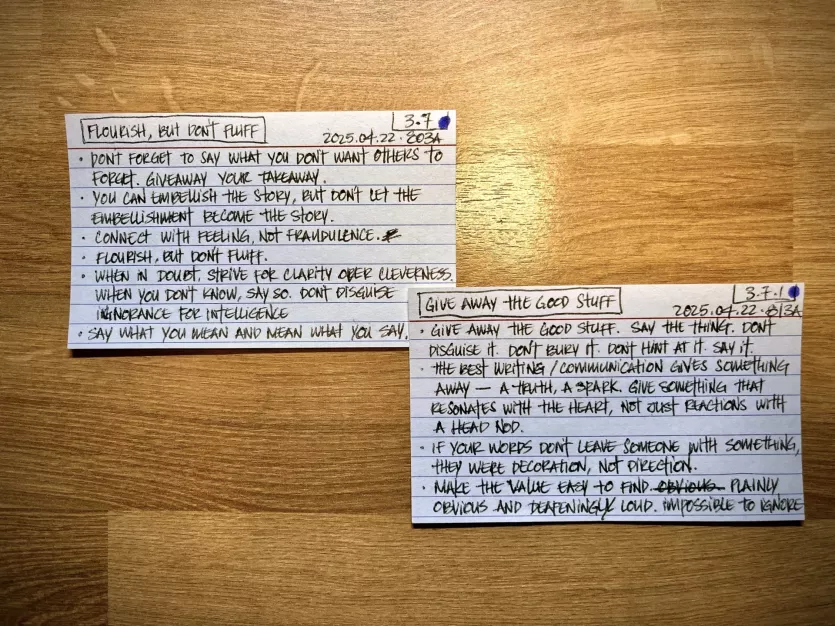 FLOURISH, BUT DON'T FLUFF
3.7
2025.04.22 · 803A
· DON'T FORGET TO SAY WHAT YOU DON'T WANT OTHERS TO
FORGET. GIVEAWAY YOUR TAKEAWAY.
· YOU CAN EMBELLISH THE STORY, BUT DON'T LET THE
EMBELLISHMENT BECOME THE STORY.
· CONNECT WITH FEELING, NOT FRAUDULENCE.
· FLOURISH, BUT DON'T FLUFF.
· WHEN IN DOUBT, STRIVE FOR CLARITY OVER CLEVERNESS.
WHEN YOU DON'T KNOW, SAY SO. DON'T DISGUISE
IGNORANCE FOR INTELLIGENCE
· SAY WHAT YOU MEAN AND MEAN WHAT YOU SAY.
GIVE AWAY THE GOOD STUFF
3.7.1
2025.04.22 · 813A
· GIVE AWAY THE GOOD STUFF. SAY THE THING. DON'T
DISGUISE IT. DON'T BURY IT. DON'T HINT AT IT. SAY IT.
· THE BEST WRITING / COMMUNICATION GIVES SOMETHING
AWAY — A TRUTH, A SPARK. GIVE SOMETHING THAT
RESONATES WITH THE HEART, NOT JUST REACTIONS WITH
A HEAD NOD.
· IF YOUR WORDS DON'T LEAVE SOMEONE WITH SOMETHING,
THEY WERE DECORATION, NOT DIRECTION.
· MAKE THE VALUE EASY TO FIND. OBVIOUS PLAINLY
OBVIOUS AND DEAFENINGLY LOUD. IMPOSSIBLE TO IGNORE